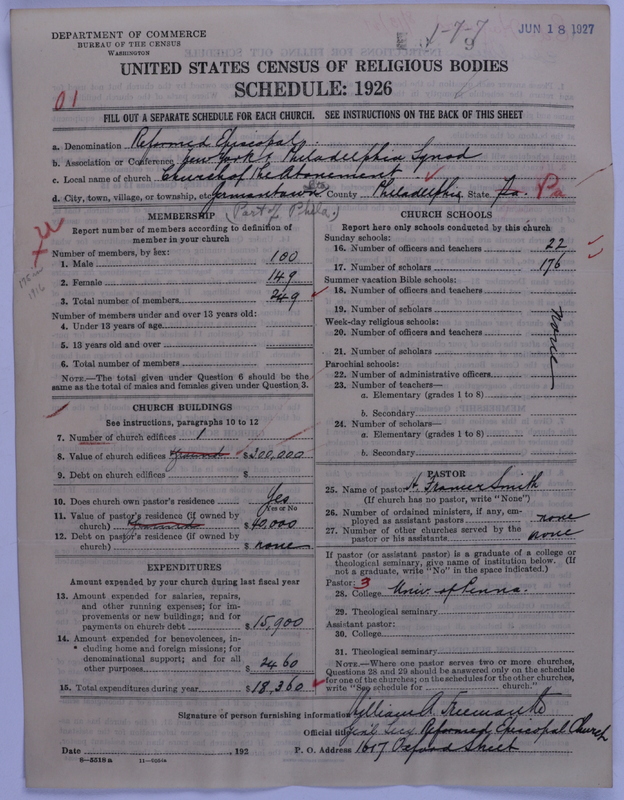 DEPARTMENT OF COMMERCE
BUREAU OF THE CENSUS
WASHINGTON
1-7-7
JUN 18 1927
UNITED STATES CENSUS OF RELIGIOUS BODIES
SCHEDULE: 1926
01
FILL OUT A SEPARATE SCHEDULE FOR EACH CHURCH. SEE INSTRUCTIONS ON THE BACK OF THIS SHEET
a. Denomination Reformed Episcopal
b. Association or Conference New York & Philadelphia Synod
c. Local name of church Church of The Atonement
d. City, town, village, or township, etc. Germantown County Philadelphia State Pa. Pa
(Part of Phila.)
MEMBERSHIP
Report number of members according to definition of
member in your church
Number of members, by sex:
1. Male 100
2. Female 149
3. Total number of members 249
Number of members under and over 13 years old:
4. Under 13 years of age
5. 13 years old and over
6. Total number of members
NOTE.—The total given under Question 6 should be the
same as the total of males and females given under Question 3.
1916
CHURCH BUILDINGS
See instructions, paragraphs 10 to 12
7. Number of church edifices 1
8. Value of church edifices $200,000
9. Debt on church edifices $
10. Does church own pastor's residence Yes
Yes or No
11. Value of pastor's residence (if owned by
church) $40,000
12. Debt on pastor's residence (if owned by
church) $ none
EXPENDITURES
Amount expended by your church during last fiscal year
13. Amount expended for salaries, repairs,
and other running expenses; for im-
provements or new buildings; and for
payments on church debt $15,900
14. Amount expended for benevolences, in-
cluding home and foreign missions; for
denominational support; and for all
other purposes $2460
15. Total expenditures during year $18,360
CHURCH SCHOOLS
Report here only schools conducted by this church
Sunday schools:
16. Number of officers and teachers 22
17. Number of scholars 176
Summer vacation Bible schools:
18. Number of officers and teachers
19. Number of scholars
Week-day religious schools:
20. Number of officers and teachers
none
21. Number of scholars
Parochial schools:
22. Number of administrative officers
23. Number of teachers—
a. Elementary (grades 1 to 8)
b. Secondary
24. Number of scholars—
a. Elementary (grades 1 to 8)
b. Secondary
PASTOR
25. Name of pastor Smith
(If church has no pastor, write "None")
26. Number of ordained ministers, if any, em-
ployed as assistant pastors none
27. Number of other churches served by the
pastor or his assistants none
If pastor (or assistant pastor) is a graduate of a college or
theological seminary, give name of institution below. (If
not a graduate, write "No" in the space indicated.)
Pastor: 3
28. College Univ. of Penna.
29. Theological seminary
Assistant pastor:
30. College
31. Theological seminary
NOTE.—Where one pastor serves two or more churches,
Questions 28 and 29 should be answered only on the schedule
for one of the churches; on the schedules for the other churches,
write "See schedule for church."
Signature of person furnishing information William A. Freemantle
Official title Gen'l Secy Reformed Episcopal Church
Date , 192 P. O. Address 1617 Oxford Street
8—5518a 11—9204a